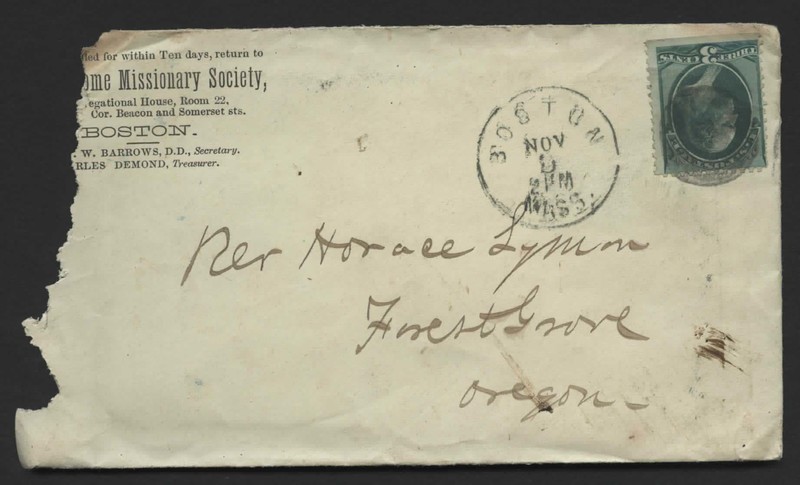 led for within Ten days, return to
ome Missionary Society,
egational House, Room 22,
Cor. Beacon and Somerset sts.
BOSTON.
W. BARROWS, D.D., Secretary.
RLES DEMOND, Treasurer.
BOSTON
NOV
PM
MASS.
3
THREE CENTS
Rev Horace Lyman
Forest Grove
Oregon